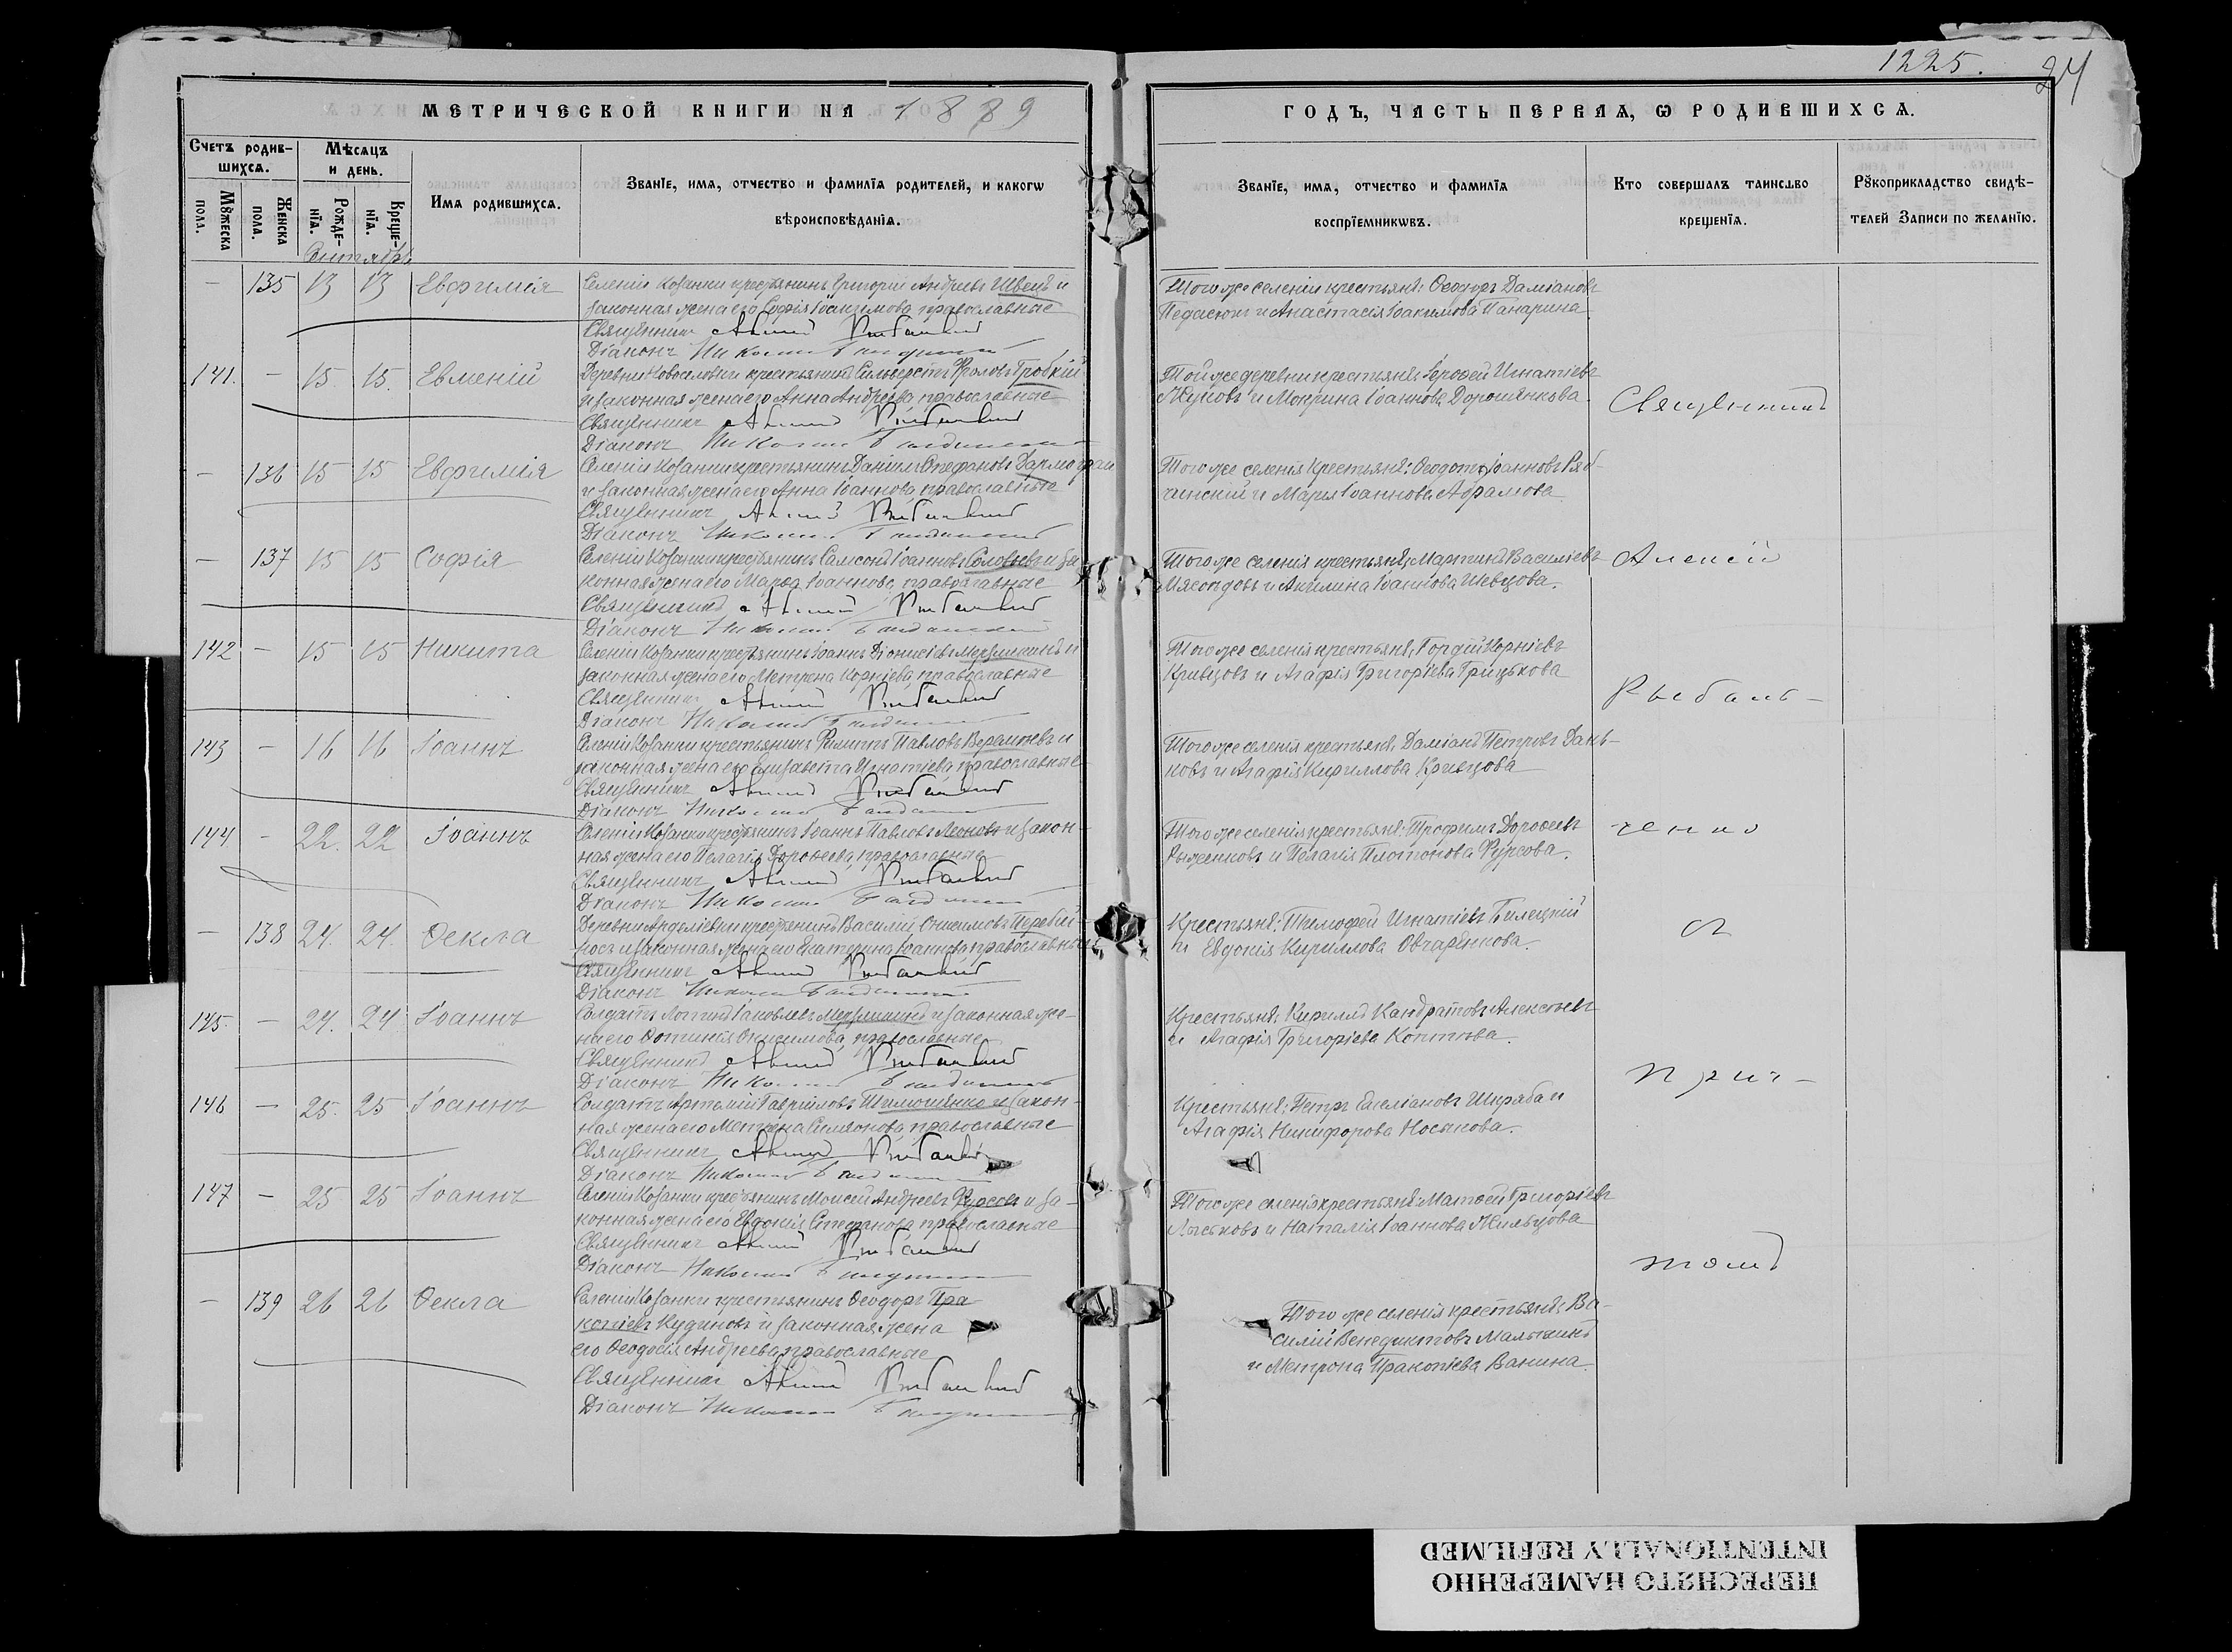 1225. 24
МЕТРИЧЕСКОЙ КНИГИ НА 1889 ГОДЪ, ЧАСТЬ ПЕРВАЯ, Ѡ РОДИВШИХСѦ.
Счетъ родив-
шихсѧ.
Мѣсѧцъ
и день.
Мꙋжеска пола.
Женска пола.
Рожде-
нїѧ.
Креще-
нїѧ.
Имѧ родившихсѧ.
Званїе, имѧ, отчество и фамилїѧ родителей, и какогѡ
вѣроисповѣданїѧ.
Званїе, имѧ, отчество и фамилїѧ
воспрїемникѡвъ.
Кто совершалъ таинство
крещенїѧ.
Рꙋкоприкладство свидѣ-
телей записи по желанїю.
Сентябрь
— 135 13 13 Евфимія
Селенія Козинки крестьянинъ Григорій Андреевъ Швецъ и
законная жена его Софія Іоакимова, православные
Священникъ Алексій Рыбальченко
Діаконъ Николай
Того же селенія крестьяне: Ѳеодоръ Даміановъ
Педасюкъ и Анастасія Іоакимова Панарина.
141. — 15. 15. Евменій
Деревни Новоселовки крестьянинъ Сильверстъ Фроловъ Гробкій
и законная жена его Анна Андреева, православные
Священникъ Алексій Рыбальченко
Діаконъ Николай
Той же деревни крестьяне Іероѳей Игнатіевъ
Жуковъ и Мокрина Іоаннова Дорошенкова.
— 136 15 15 Евфимія
Селенія Козинки крестьянинъ Даніилъ Стефановъ Дармограй
и законная жена его Анна Іоаннова, православные
Священникъ Алексій Рыбальченко
Діаконъ Николай
Того же селенія крестьяне: Ѳеодотъ Іоанновъ Ряб-
чинскій и Марія Іоаннова Абрамова
— 137 15 15 Софія
Селенія Козинки крестьянинъ Самсонъ Іоанновъ Соловьевъ и за-
конная жена его Марѳа Іоаннова, православные
Священникъ Алексій Рыбальченко
Діаконъ Николай
Того же селенія крестьяне: Мартинъ Василіевъ
Мясоѣдовъ и Акилина Іоаннова Шевцова.
142 — 15 15 Никита
Селенія Козинки крестьянинъ Іоаннъ Діонисіевъ и
законная жена его Метрена Корніева, православные
Священникъ Алексій Рыбальченко
Діаконъ Николай
Того же селенія крестьяне, Гордій Корніевъ
Кривцовъ и Агафія Григоріева Грицькова
143 — 16 16 Іоаннъ
Селенія Козинки крестьянинъ Филиппъ Павловъ Веремѣевъ и
законная жена его Елизавета Игнатіева, православные
Священникъ Алексій Рыбальченко
Діаконъ Николай
Того же селенія крестьяне, Даміанъ Петровъ Дань-
ковъ и Агафія Кириллова Кривцова
144 — 22. 22 Іоаннъ
Селенія Козинки крестьянинъ Іоаннъ Павловъ Леоновъ и закон-
ная жена его Пелагія Дороѳеева, православные
Священникъ Алексій Рыбальченко
Діаконъ Николай
Того же селенія крестьяне: Трофимъ Дороѳеевъ
Рыженковъ и Пелагія Платонова Фурсова.
— 138 24. 24. Ѳекла
Деревни крестьянинъ Василій Онисимовъ Перебій-
носъ и законная жена его Екатерина Іоаннова, православные
Священникъ Алексій Рыбальченко
Діаконъ Николай
Крестьяне: Тимофей Игнатіевъ Билецкій
и Евдокія Кириллова Овчаренкова.
145. — 24. 24 Іоаннъ
Солдатъ Іаковлевъ и законная же-
на его Фотинія Онисимова, православные
Священникъ Алексій Рыбальченко
Діаконъ Николай
Крестьяне: Кириллъ Кандратовъ Алексѣевъ
и Агафія Григоріева Коптева.
146 — 25. 25 Іоаннъ
Солдатъ Артемій Гавриловъ Тимошенко и закон-
ная жена его Метрена Симеонова, православные
Священникъ Алексій Рыбальченко
Діаконъ Николай
Крестьяне: Петръ Емеліановъ Шкраба и
Агафія Никифорова Носикова.
147 — 25 25 Іоаннъ
Селенія Козинки крестьянинъ Моисей Андреевъ Фурсовъ и за-
конная жена его Евдокія Стефанова, православные
Священникъ Алексій Рыбальченко
Діаконъ Николай
Того же селенія крестьяне: Матѳей Григоріевъ
Лыськовъ и Наталія Іоаннова Жильцова
— 139 26 26 Ѳекла
Селенія Козинки крестьянинъ Ѳеодоръ Пра-
копіевъ Кудиновъ и законная жена
его Ѳеодосія Андреева, православные
Священникъ Алексій Рыбальченко
Діаконъ Николай
Того же селенія крестьяне: Ва-
силій Венедиктовъ Малыхинъ
и Метрона Пракопіева Ванина.
Священникъ
Алексій
Рыбаль-
ченко
съ
прич-
томъ
ПЕРЕСНЯТО НАМЕРЕННО
INTENTIONALLY REFILMED